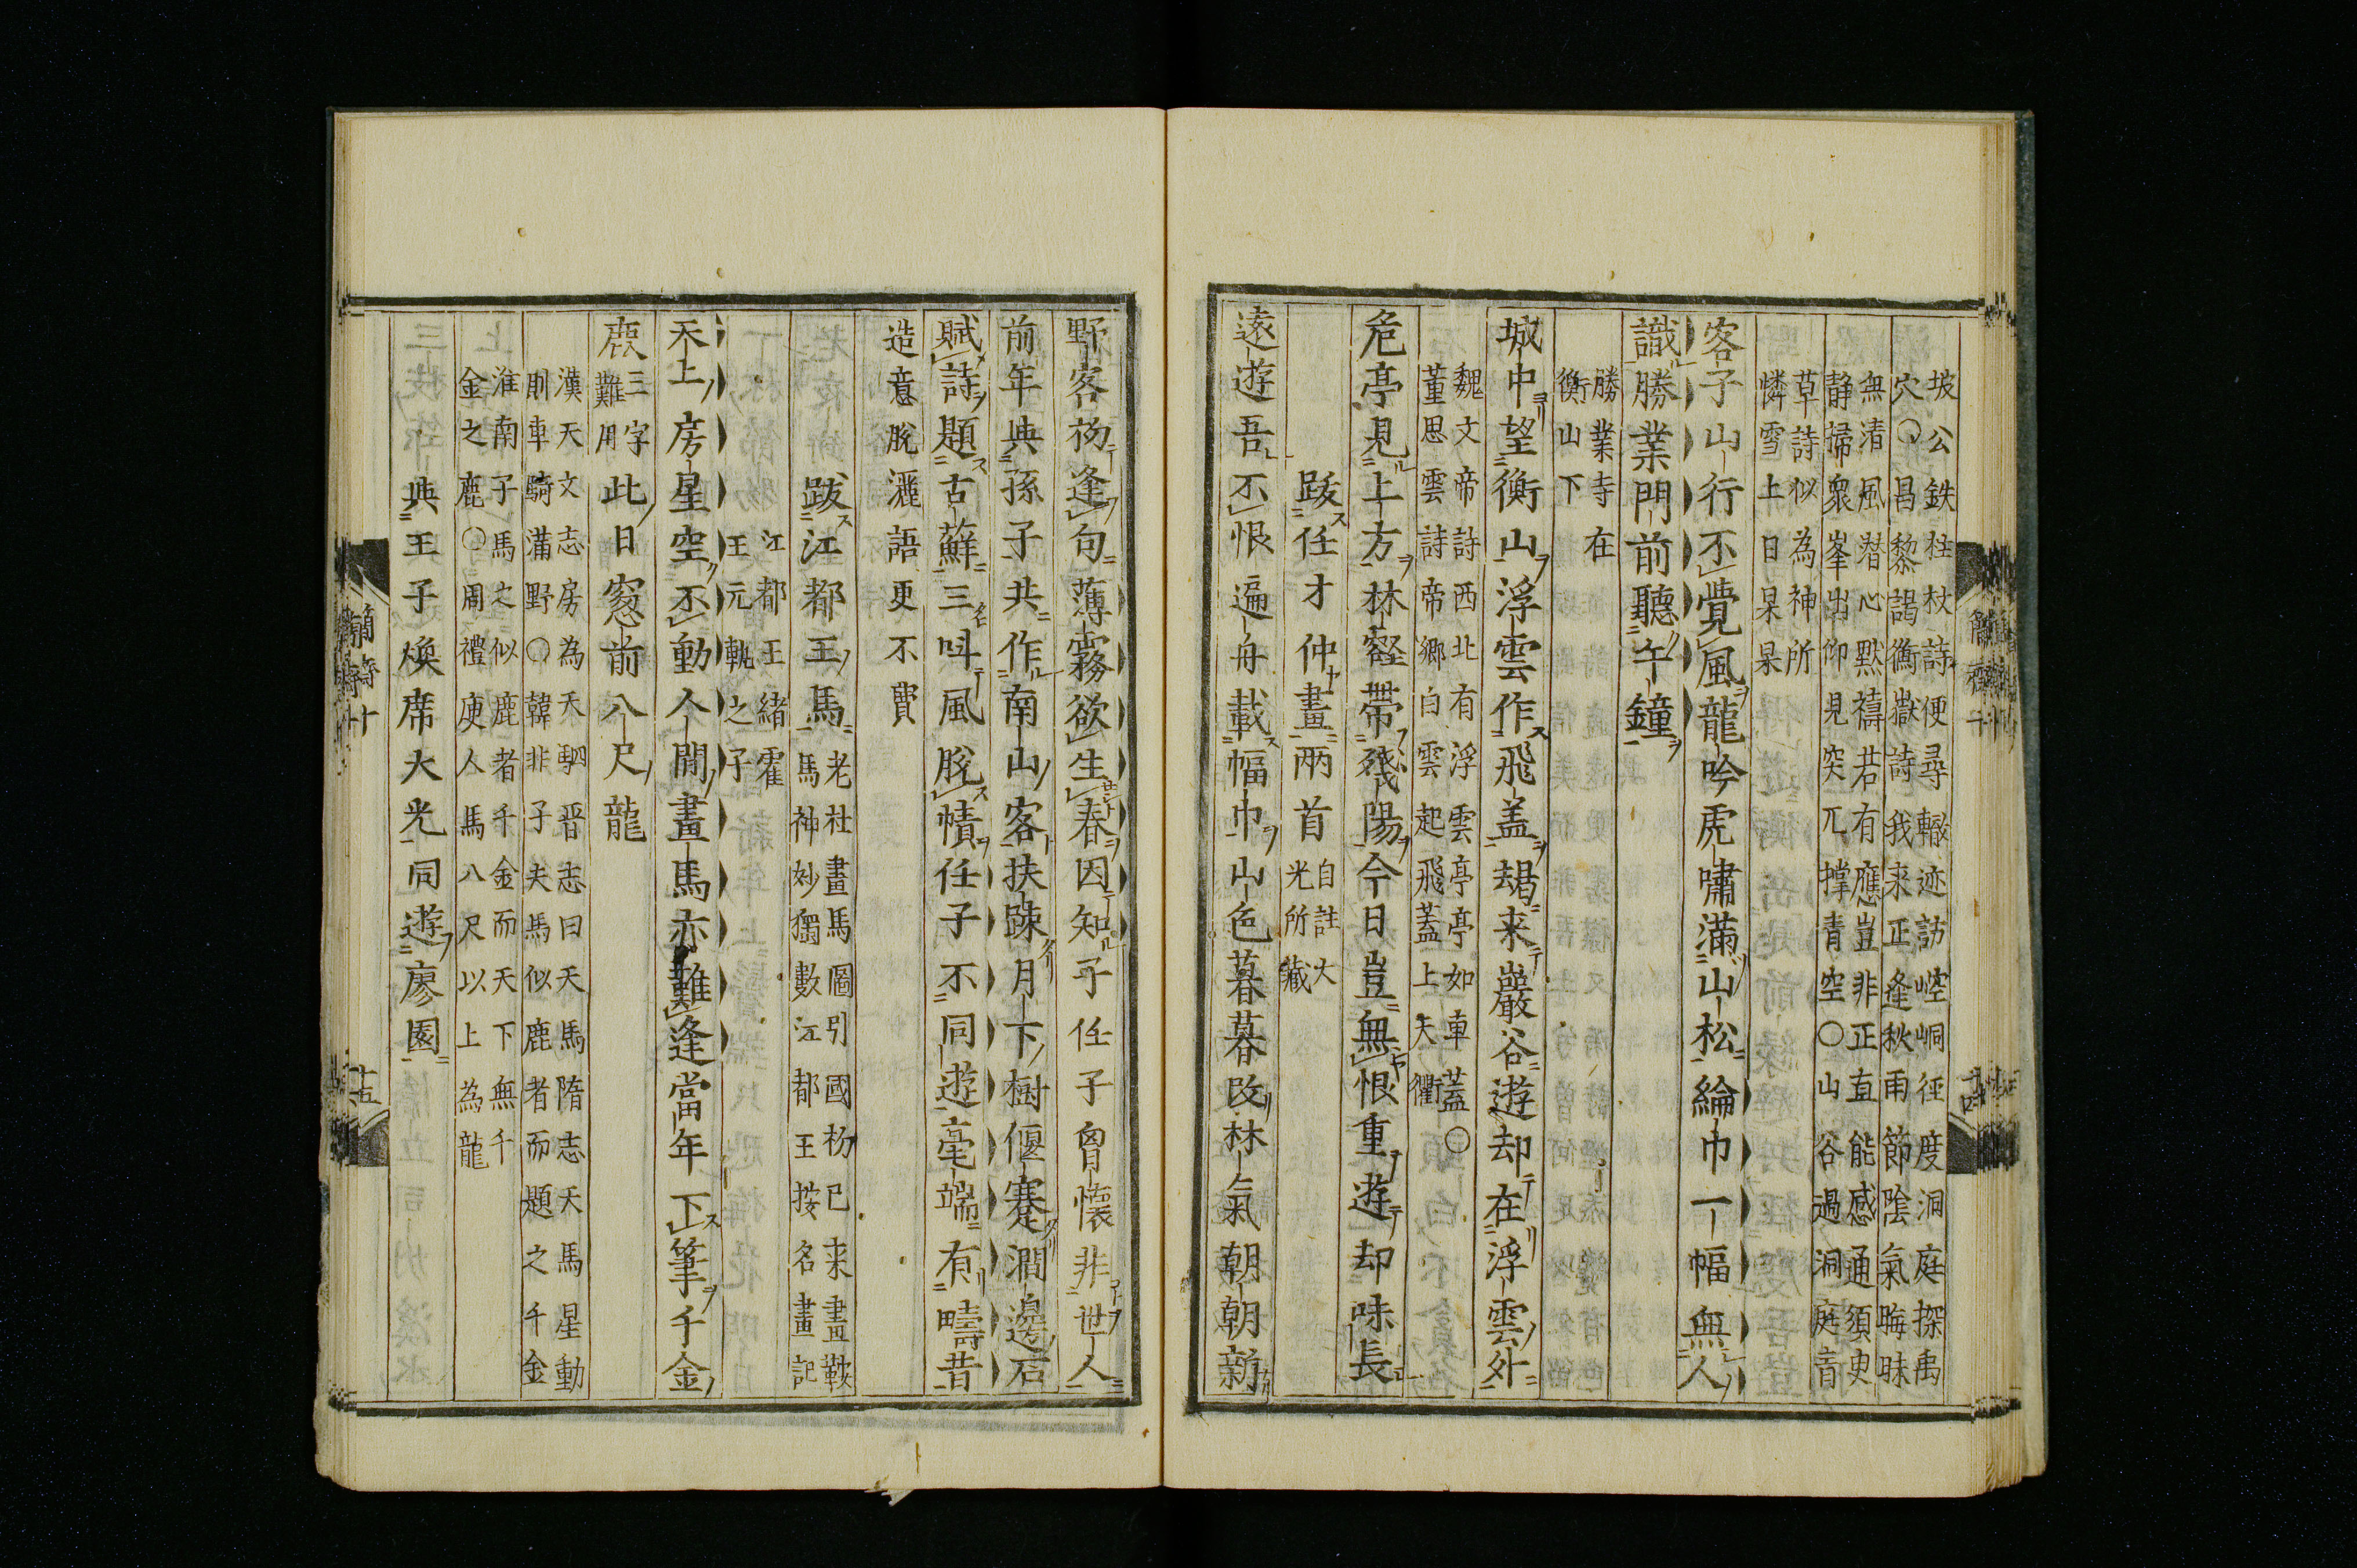 坡公鉄柱杖詩便尋轍迹訪崆峒徑度洞庭探禹
穴○昌黎謁衡嶽詩我来正逢秋雨節陰氣晦昧
無清風潜心默禱若有應豈非正直能感通須史
静掃衆峯出仰見突兀撑青空○山谷過洞庭青
草詩似為神所
憐雪上日杲杲
客子山行不覺風龍吟虎嘯滿山松綸巾一幅無人
識勝業門前聽午鐘
勝業寺在
衡山下
城中望衡山浮雲作飛盖朅来巖谷遊却在浮雲外
魏文帝詩西北有浮雲亭亭如車蓋○
董思雲詩帝郷白雲起飛蓋上天衢
危亭見上方林壑帶殘陽今日豈無恨重遊却味長
跋任才仲畫兩首
自註大
光所藏
遠遊吾不恨遍舟載幅巾山色暮暮改林氣朝朝新
野客初逢句薄霧欲生春因知子任子曾懷非世人
前年與孫子共作南山客扶踈月下樹偃蹇澗邊石
賦詩題古蘚三呌風脫幘任子不同遊毫端有疇昔
造意脫灑語更不費
跋江都王馬
老杜畫馬圖引國初已来畫鞍
馬神妙獨數江都王按名畫記
江都王緒霍
王元軌之子
天上房星空不動人間畫馬亦難逢當年下筆千金
鹿
三字
難用
此日窻前八尺龍
漢天文志房為天駟晋志曰天馬隋志天馬星動
則車騎滿野○韓非子夫馬似鹿者而題之千金
淮南子馬之似鹿者千金而天下無千
金之鹿○周禮庾人馬八尺以上為龍
與王子煥席大光同遊廖園
簡齋十
十五